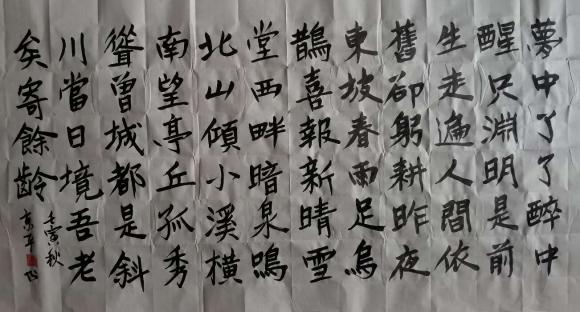 夢中了了醉中
醒只淵明是前
生走遍人間依
舊卻躬耕昨夜
東坡春雨足烏
鵲喜報新晴雪
堂西畔暗泉鳴
北山傾小溪橫
南望亭丘孤秀
聳曾城都是斜
川當日境吾老
矣寄餘齡
壬寅秋